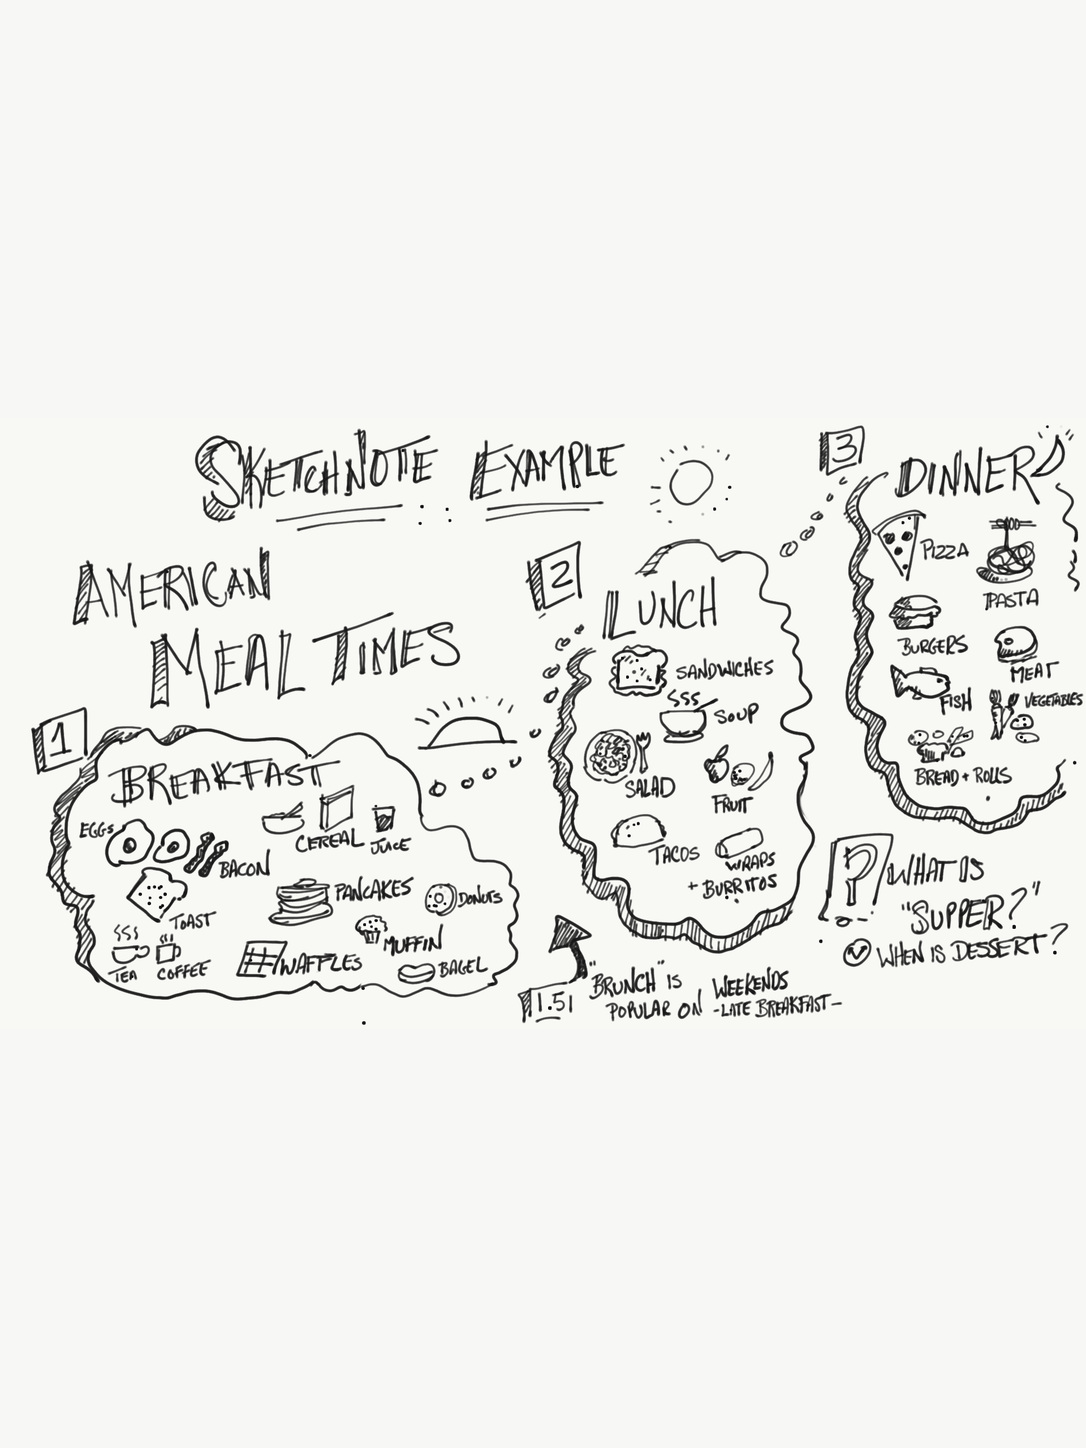 SKETCHNOTE EXAMPLE
AMERICAN
MEAL TIMES
1
BREAKFAST
EGGS
BACON
CEREAL
JUICE
TOAST
PANCAKES
DONUTS
TEA
COFFEE
WAFFLES
MUFFIN
BAGEL
2
LUNCH
SANDWICHES
SOUP
SALAD
FRUIT
TACOS
WRAPS
+ BURRITOS
1.5
"BRUNCH" IS
POPULAR ON WEEKENDS
-LATE BREAKFAST-
3
DINNER
PIZZA
PASTA
BURGERS
MEAT
FISH
VEGETABLES
BREAD + ROLLS
? WHAT IS
"SUPPER?"
WHEN IS DESSERT?